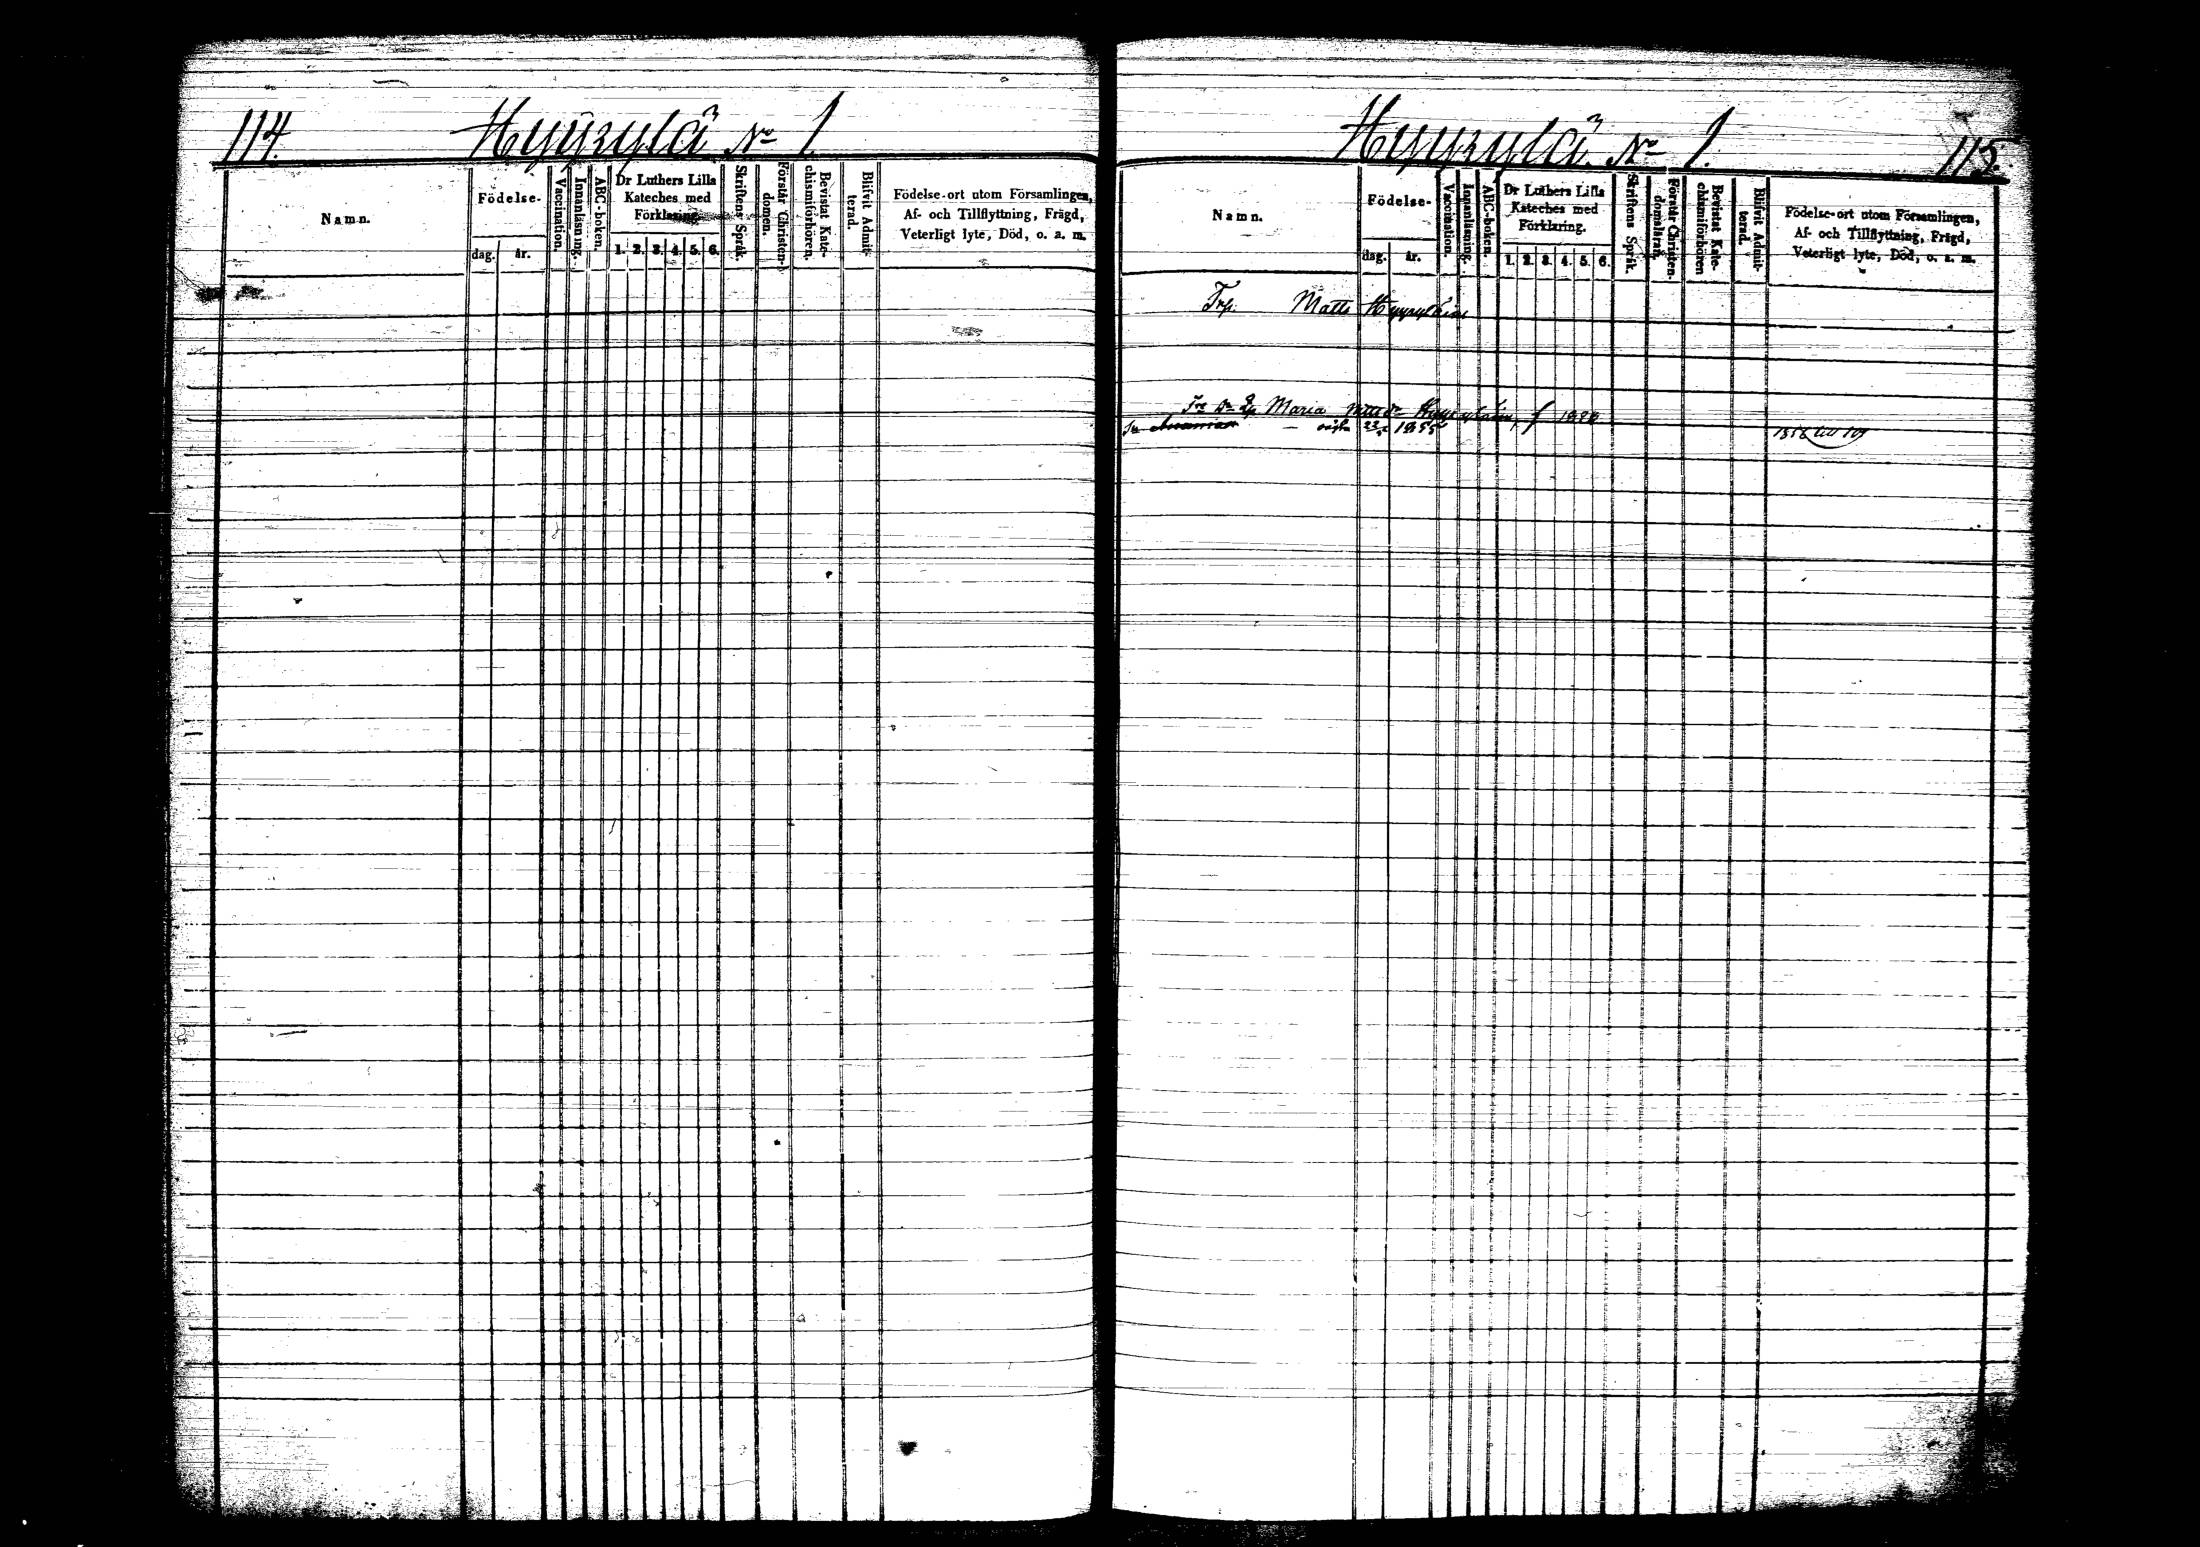 114. Hyyrylä No 1.
Namn.
Födelse-
dag. år.
Vaccination.
Innanläsning.
ABC-boken.
Dr Luthers Lilla
Kateches med
Förklaring.
1. 2. 3. 4. 5. 6.
Skriftens Språk.
Förstår Christen-
domen.
Bevistat Kate-
chismiförhören.
Blifvit Admit-
terad.
Födelse-ort utom Församlingen,
Af- och Tillflyttning, Frägd,
Veterligt lyte, Död, o. a. m.
Hyyrylä No 1. 115.
Namn.
Födelse-
dag. år.
Vaccination.
Innanläsning.
ABC-boken.
Dr Luthers Lilla
Kateches med
Förklaring.
1. 2. 3. 4. 5. 6.
Skriftens Språk.
Förstår Christen-
domsläran.
Bevistat Kate-
chismiförhören
Blifvit Admit-
terad.
Födelse-ort utom Församlingen,
Af- och Tillflyttning, Frägd,
Veterligt lyte, Död, o. a. m.
Trp. Matts Hyyryläin
Maria
1855